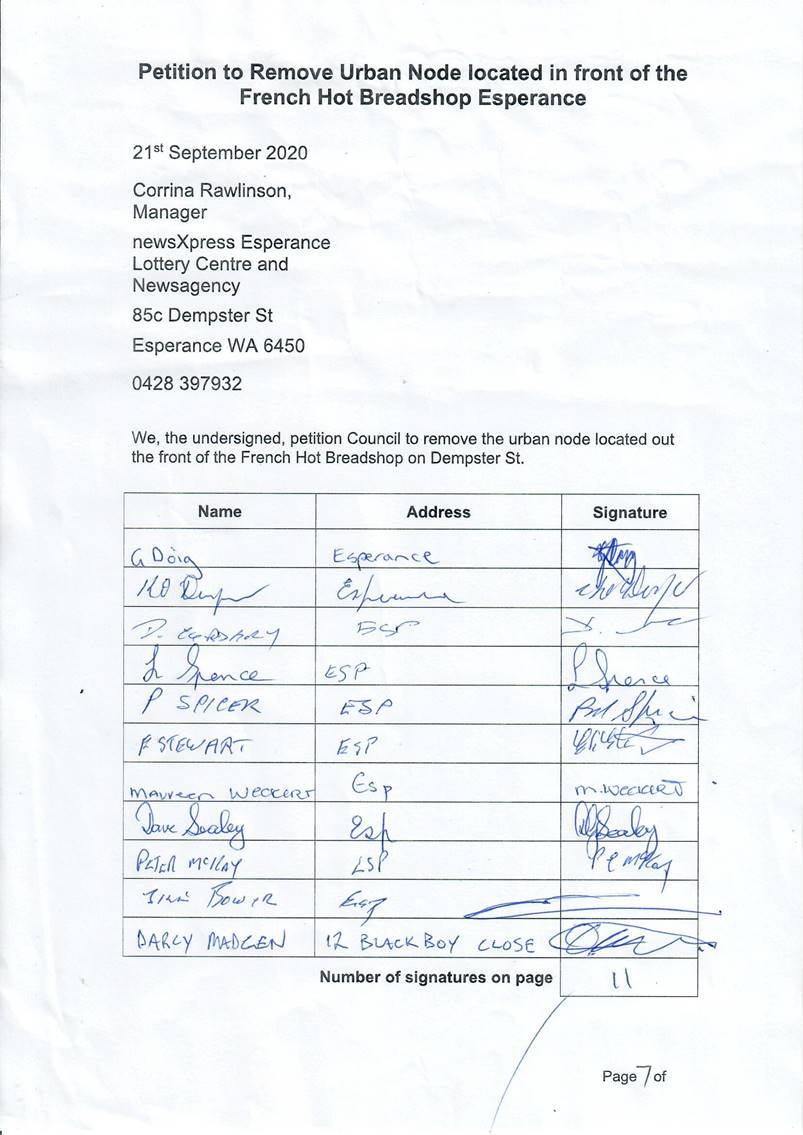 Petition to Remove Urban Node located in front of the
French Hot Breadshop Esperance
21st September 2020
Corrina Rawlinson,
Manager
newsXpress Esperance
Lottery Centre and
Newsagency
85c Dempster St
Esperance WA 6450
0428 397932
We, the undersigned, petition Council to remove the urban node located out
the front of the French Hot Breadshop on Dempster St.
Name Address Signature
G Doig Esperance
Esperance
D. ESP
L Spence ESP L Spence
P SPICER ESP
F STEWART ESP
Maureen Weckert Esp M. Weckert
Dave Sealey Esp Sealey
PETER McKAY ESP P E McKay
Bower Esp
DARCY MADGEN 12 BLACKBOY CLOSE
Number of signatures on page 11
Page 7 of